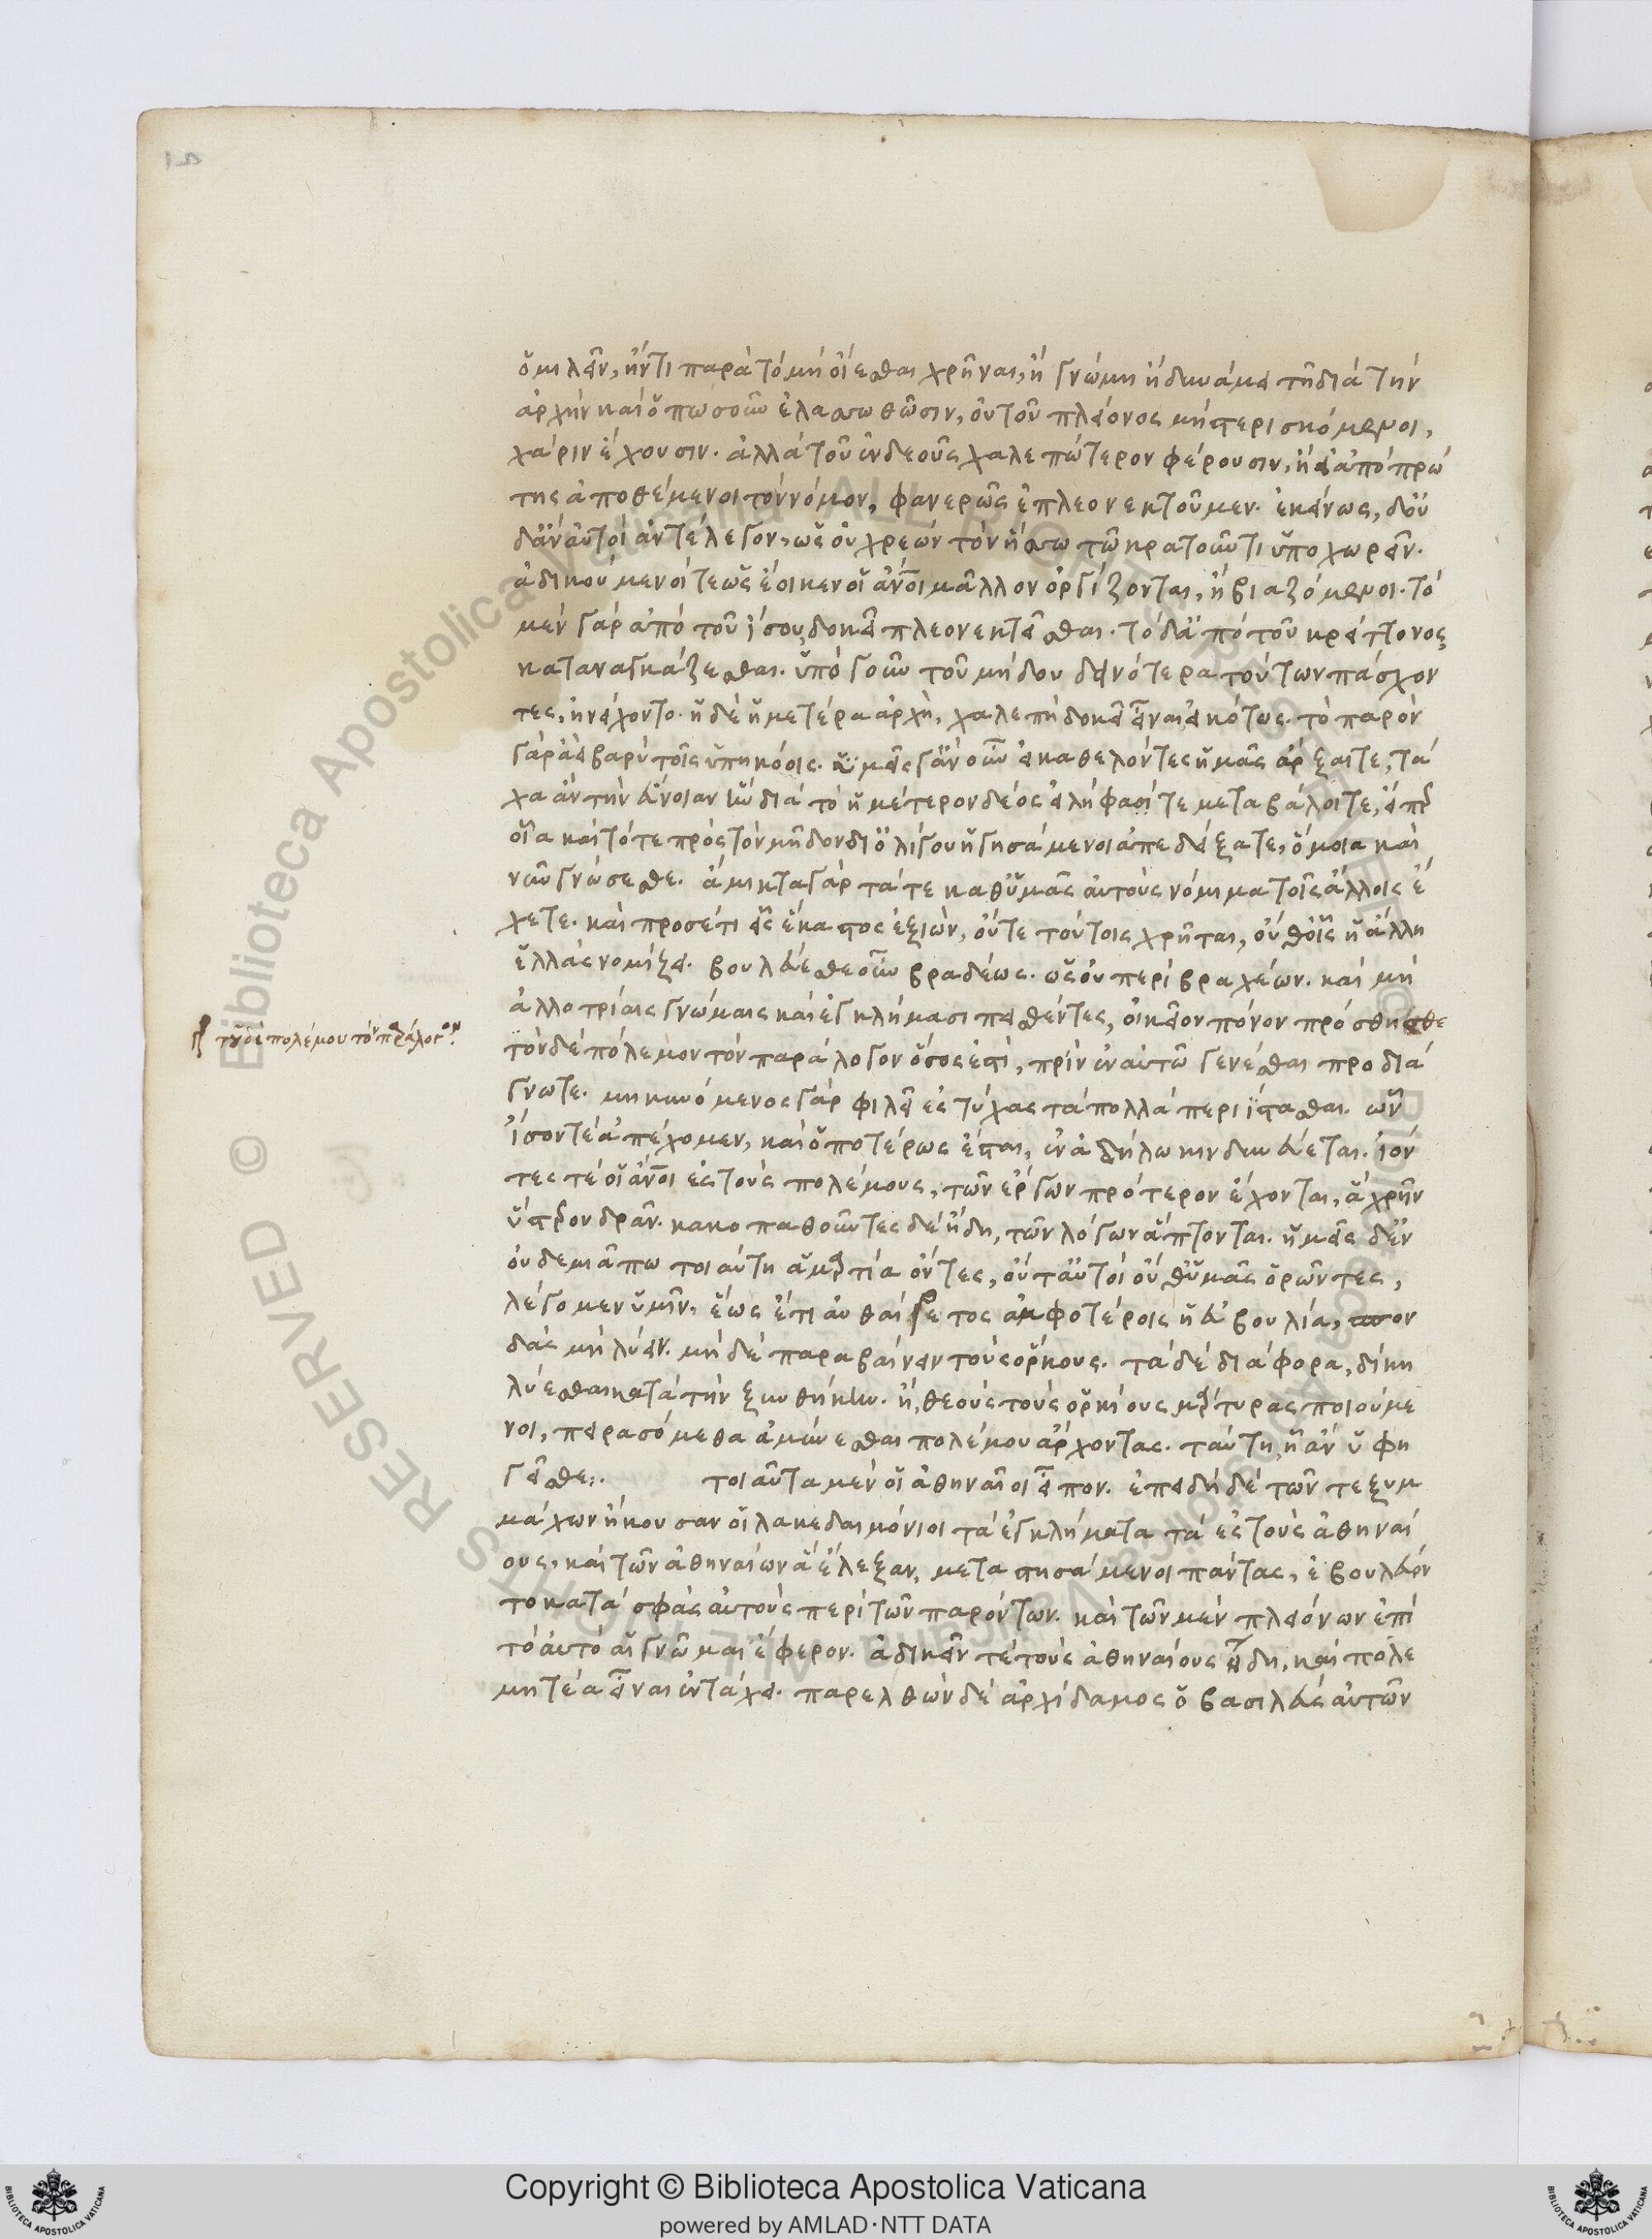 ὁμιλεῖν, ἤν τι παρὰ τὸ μὴ οἴεσθαι χρῆναι, ἢ γνώμη ἢ δυνάμει τῆ διὰ τὴν
ἀρχὴν καὶ ὁπωσοῦν ἐλασσωθῶσιν, οὐ τοῦ πλείονος μὴ στερισκόμενοι,
χάριν ἔχουσιν. ἀλλὰ τοῦ ἐνδεοῦς χαλεπώτερον φέρουσιν, ἢ εἰ ἀπὸ πρώ
της ἀποθέμενοι τὸν νόμον, φανερῶς ἐπλεονεκτοῦμεν. ἐκείνως, δ' οὐ
δ' ἂν αὐτοὶ ἀντέλεγον, ὡς οὐ χρεὼν τὸν ἥσσω τῶ κρατοῦντι ὑποχωρεῖν.
ἀδικούμενοί τε ὡς ἔοικεν οἱ ἄνοι μᾶλλον ὀργίζονται, ἢ βιαζόμενοι. τὸ
μὲν γὰρ ἀπὸ τοῦ ἴσου, δοκεῖ πλεονεκτεῖσθαι. τὸ δ' ἀπὸ τοῦ κρείττονος
καταναγκάζεσθαι. ὑπὸ γοῦν τοῦ μήδου δεινότερα τούτων πάσχον
τες, ἠνείχοντο. ἡ δὲ ἡμετέρα ἀρχὴ, χαλεπὴ δοκεῖ εἶναι εἰκότως. τὸ παρὸν
γὰρ ἀεὶ βαρὺ τοῖς ὑπηκόοις. ὑμεῖς γ' ἂν οὖν εἰ καθελόντες ἡμᾶς ἄρξαιτε, τά
χα ἂν τὴν εὔνοιαν ἣν διὰ τὸ ἡμέτερον δέος εἰλήφατε μεταβάλοιτε, εἴπερ
οἷα καὶ τότε πρὸς τὸν μῆδον δι' ὀλίγου ἡγησάμενοι ἀπεδείξατε, ὅμοια καὶ
νῦν γνώσεσθε. ἄμικτα γὰρ τά τε καθ' ὑμᾶς αὐτοὺς νόμιμα τοῖς ἄλλοις ἔ
χετε. καὶ προσέτι εἷς ἕκαστος ἐξιὼν, οὔτε τούτοις χρῆται, οὔθ' οἷς ἡ ἄλλη
ἑλλὰς νομίζει. βουλεύεσθε οὖν βραδέως. ὡς οὐ περὶ βραχέων. καὶ μὴ
ἀλλοτρίαις γνώμαις καὶ ἐγκλήμασι πεισθέντες, οἰκεῖον πόνον πρόσθησθε
τοῦ δὲ πολέμου τὸν παράλογον
τὸν δὲ πόλεμον τὸν παράλογον ὅσος ἐστὶ, πρὶν ἐν αὐτῶ γενέσθαι προδιά
γνωτε. μηκυνόμενος γὰρ φιλεῖ ἐς τύχας τὰ πολλὰ περιίστασθαι. ὧν
ἴσον τε ἀπέχομεν, καὶ ὁποτέρως ἔσται, ἐν ἀδήλω κινδυνεύεται. ἰόν
τες τε οἱ ἄνοι ἐς τοὺς πολέμους, τῶν ἔργων πρότερον ἔχονται, ἃ χρῆν
ὕστερον δρᾶν. κακοπαθοῦντες δὲ ἤδη, τῶν λόγων ἅπτονται. ἡμεῖς δ' ἐν
οὐδεμιᾶ πω τοιαύτη ἁμαρτία ὄντες, οὔτ' αὐτοὶ οὔθ' ὑμᾶς ὁρῶντες,
λέγομεν ὑμῖν, ἕως ἔτι αὐθαίρετος ἀμφοτέροις ἡ εὐβουλία, σπον
δὰς μὴ λύειν. μὴ δὲ παραβαίνειν τοὺς ὅρκους. τὰ δὲ διάφορα, δίκη
λύεσθαι κατὰ τὴν ξυνθήκην. ἢ, θεοὺς τοὺς ὁρκίους μάρτυρας ποιούμε
νοι, πειρασόμεθα ἀμύνεσθαι πολέμου ἄρχοντας. ταύτη, ἧ ἂν ὑφη
γεῖσθε:. τοιαῦτα μὲν οἱ ἀθηναῖοι εἶπον. ἐπειδὴ δὲ τῶν τε ξυμ
μάχων ἤκουσαν οἱ λακεδαιμόνιοι τὰ ἐγκλήματα τὰ ἐς τοὺς ἀθηναί
ους, καὶ τῶν ἀθηναίων ἃ ἔλεξαν, μεταστησάμενοι πάντας, ἐβουλεύον
το κατὰ σφὰς αὐτοὺς περὶ τῶν παρόντων. καὶ τῶν μὲν πλειόνων ἐπὶ
τὸ αὐτὸ αἱ γνῶμαι ἔφερον. ἀδικεῖν τε τοὺς ἀθηναίους ἤδη, καὶ πολε
μητέα εἶναι ἐν τάχει. παρελθὼν δὲ ἀρχίδαμος ὁ βασιλεὺς αὐτῶν
Copyright © Biblioteca Apostolica Vaticana
powered by AMLAD·NTT DATA